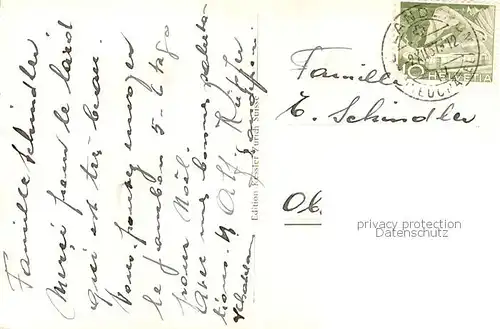 Famille Schindler
Merci pour le lard
qui est très beau.
Vous pouvez envoyer
le jambon 5-6 kgs
pour Noël.
Avec nos bonnes saluta-
tions.
Edition Kessler Zürich Suisse
HELVETIA
10
Famille
E. Schindler
Ob.
privacy protection
Datenschutz